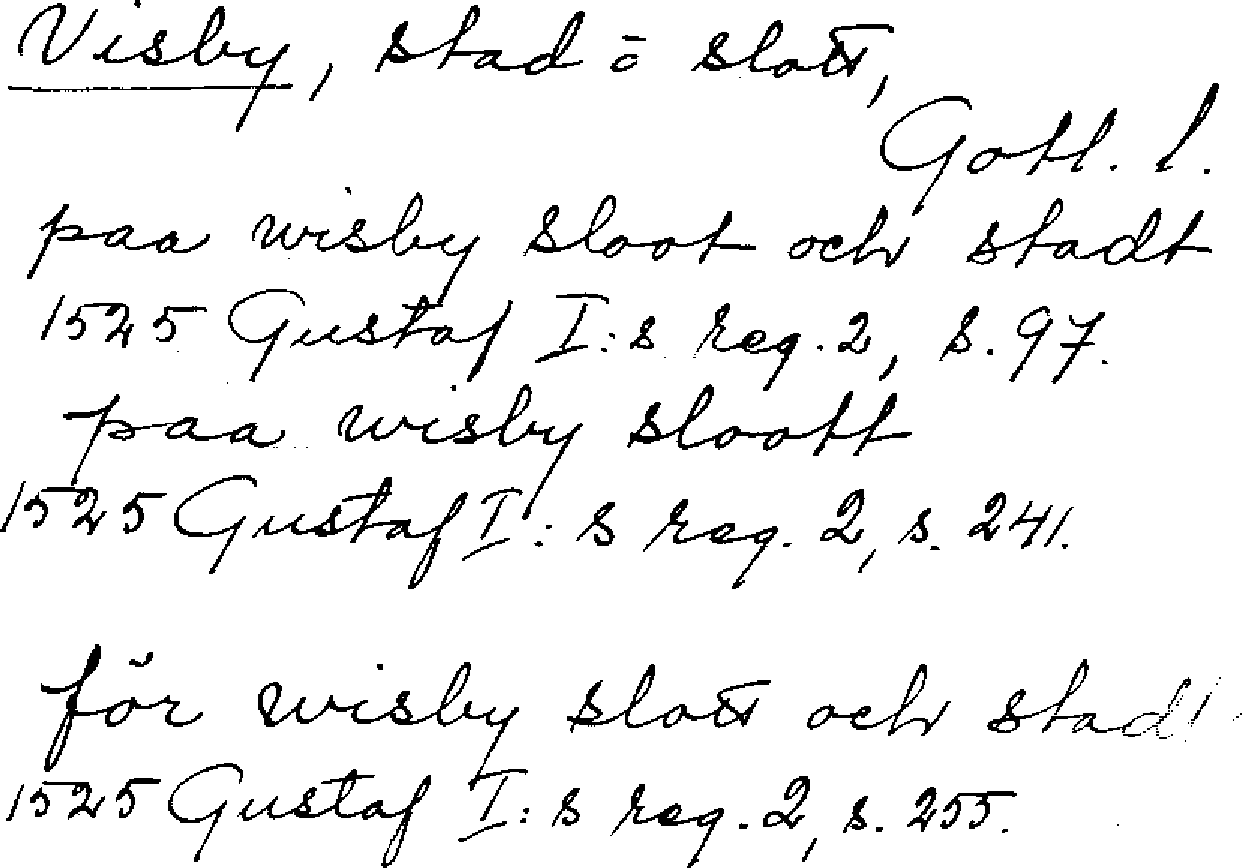 Visby, stad o slott,
Gotl. l.
paa wisby sloot och stadt
1525 Gustaf I:s reg. 2, s. 97.
paa wisby sloott
1525 Gustaf I:s reg. 2, s. 241.
för wisby slott och stadt
1525 Gustaf I:s reg. 2, s. 255.